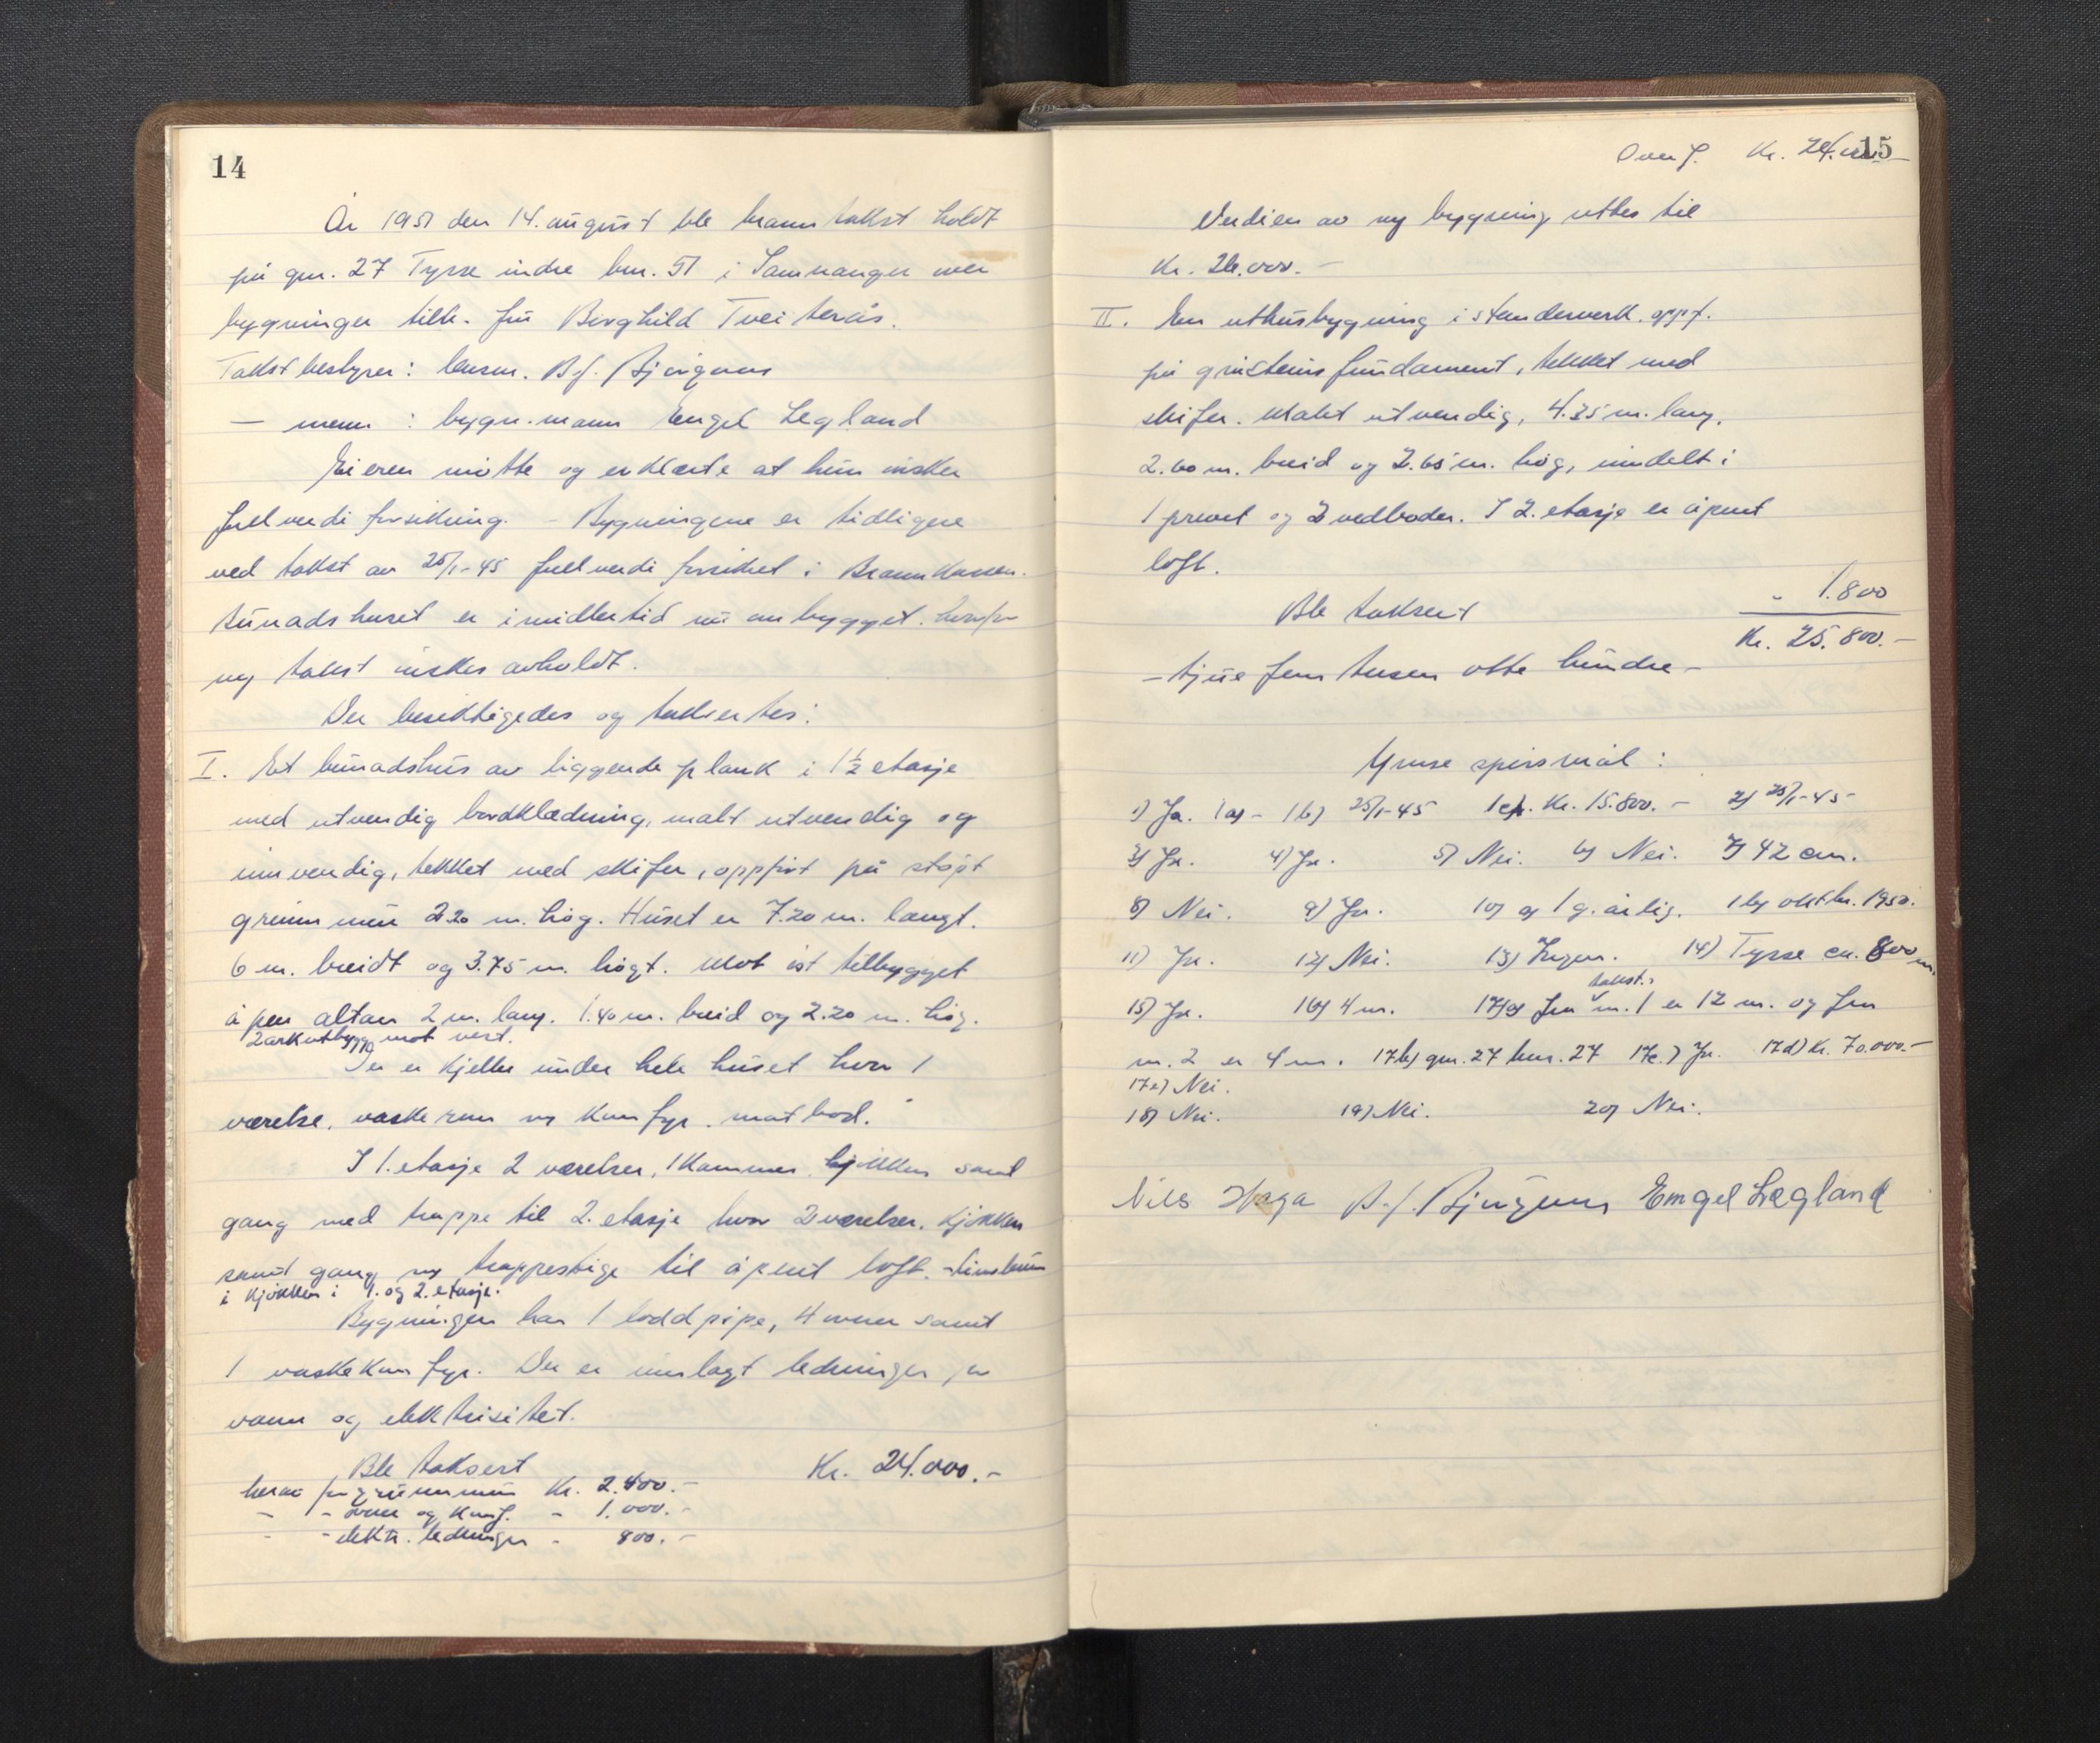 14
År 1951 den 14. august ble branntakst holdt
på gnr. 27 Tysse indre bnr. 51 i Samnanger over
bygninger tilh. fru Borghild Tveiterås.
Takstbestyrer: lensm. B. J. Bjørgum
— menn : bygn.mann Engel Legland
Eieren møtte og erklærte at hun ønsker
fullverdi forsikring. - Bygningene er tidligere
ved takst av 25/1-45 fullverdi forsikret i Brannkassen.
bunadshuset er imidlertid nu ombygget. hvorfor
ny takst ønskes avholdt.
Der besiktigedes og taksertes:
I. Et bunadshus av liggende plank i 1½ etasje
med utvendig bordklædning, malt utvendig og
innvendig, tekket med skifer, oppført på støpt
grunnmur 2.20 m. høg. Huset er 7.20 m. langt.
6 m. breidt og 3.75 m. høgt. Mot øst tilbygget
åpen altan 2 m. lang. 1.40 m. breid og 2.20 m. høg.
2 ark utbygg mot vest.
Der er kjeller under hele huset hvor 1
værelse, vaskerum og komfyr. matbod.
I 1. etasje 2 værelser, 1 kammer, kjøkken samt
gang med trappe til 2. etasje hvor 2 værelser, kjøkken
samt gang og trappestige til åpent loft.
i kjøkken i 1. og 2. etasje.
Bygningen har 1 loddpipe, 4 ovner samt
1 vaskekomfyr. Der er innlagt ledninger for
vann og elektrisitet.
Ble taksert Kr. 24.000.-
herav for grunnmur Kr. 2.400.-
- - ovner og komf. - 1.000.-
- - elektr. ledninger - 800.-
15
Overf. Kr. 24.000.-
Verdien av ny bygning settes til
Kr. 26.000.-
II. En uthusbygning i stenderverk. oppf.
på gråsteinsfundament, tekket med
skifer. Malt utvendig, 4.35 m. lang,
2.60 m. breid og 2.65 m. høg, inndelt i
1 prevet og 2 vedboder. I 2. etasje er åpent
loft.
Ble taksert - 1.800
Kr. 25.800.-
- tjue fem tusen otte hundre -
Ymse spørsmål :
1) Ja. 1a) - 1b) 25/1-45 1c). Kr. 15.800.- 2) 25/1-45
3) Ja. 4) Ja. 5) Nei. 6) Nei. 7) 42 cm.
8) Nei. 9) Ja. 10) a) 1 g. årlig. 1b) oktbr. 1950.
11) Ja. 12) Nei. 13) Ingen. 14) Tysse ca. 800 m.
15) Ja. 16) 4 m. 17)a) fra takst. nr. 1 er 12 m. og fra
nr. 2 er 4 m. 17b) gnr. 27 bnr. 27 17c.) Ja. 17d) Kr. 70.000.-
17e) Nei.
18) Nei. 19) Nei. 20) Nei.
Nils Haga B. J. Bjørgum Engel Legland